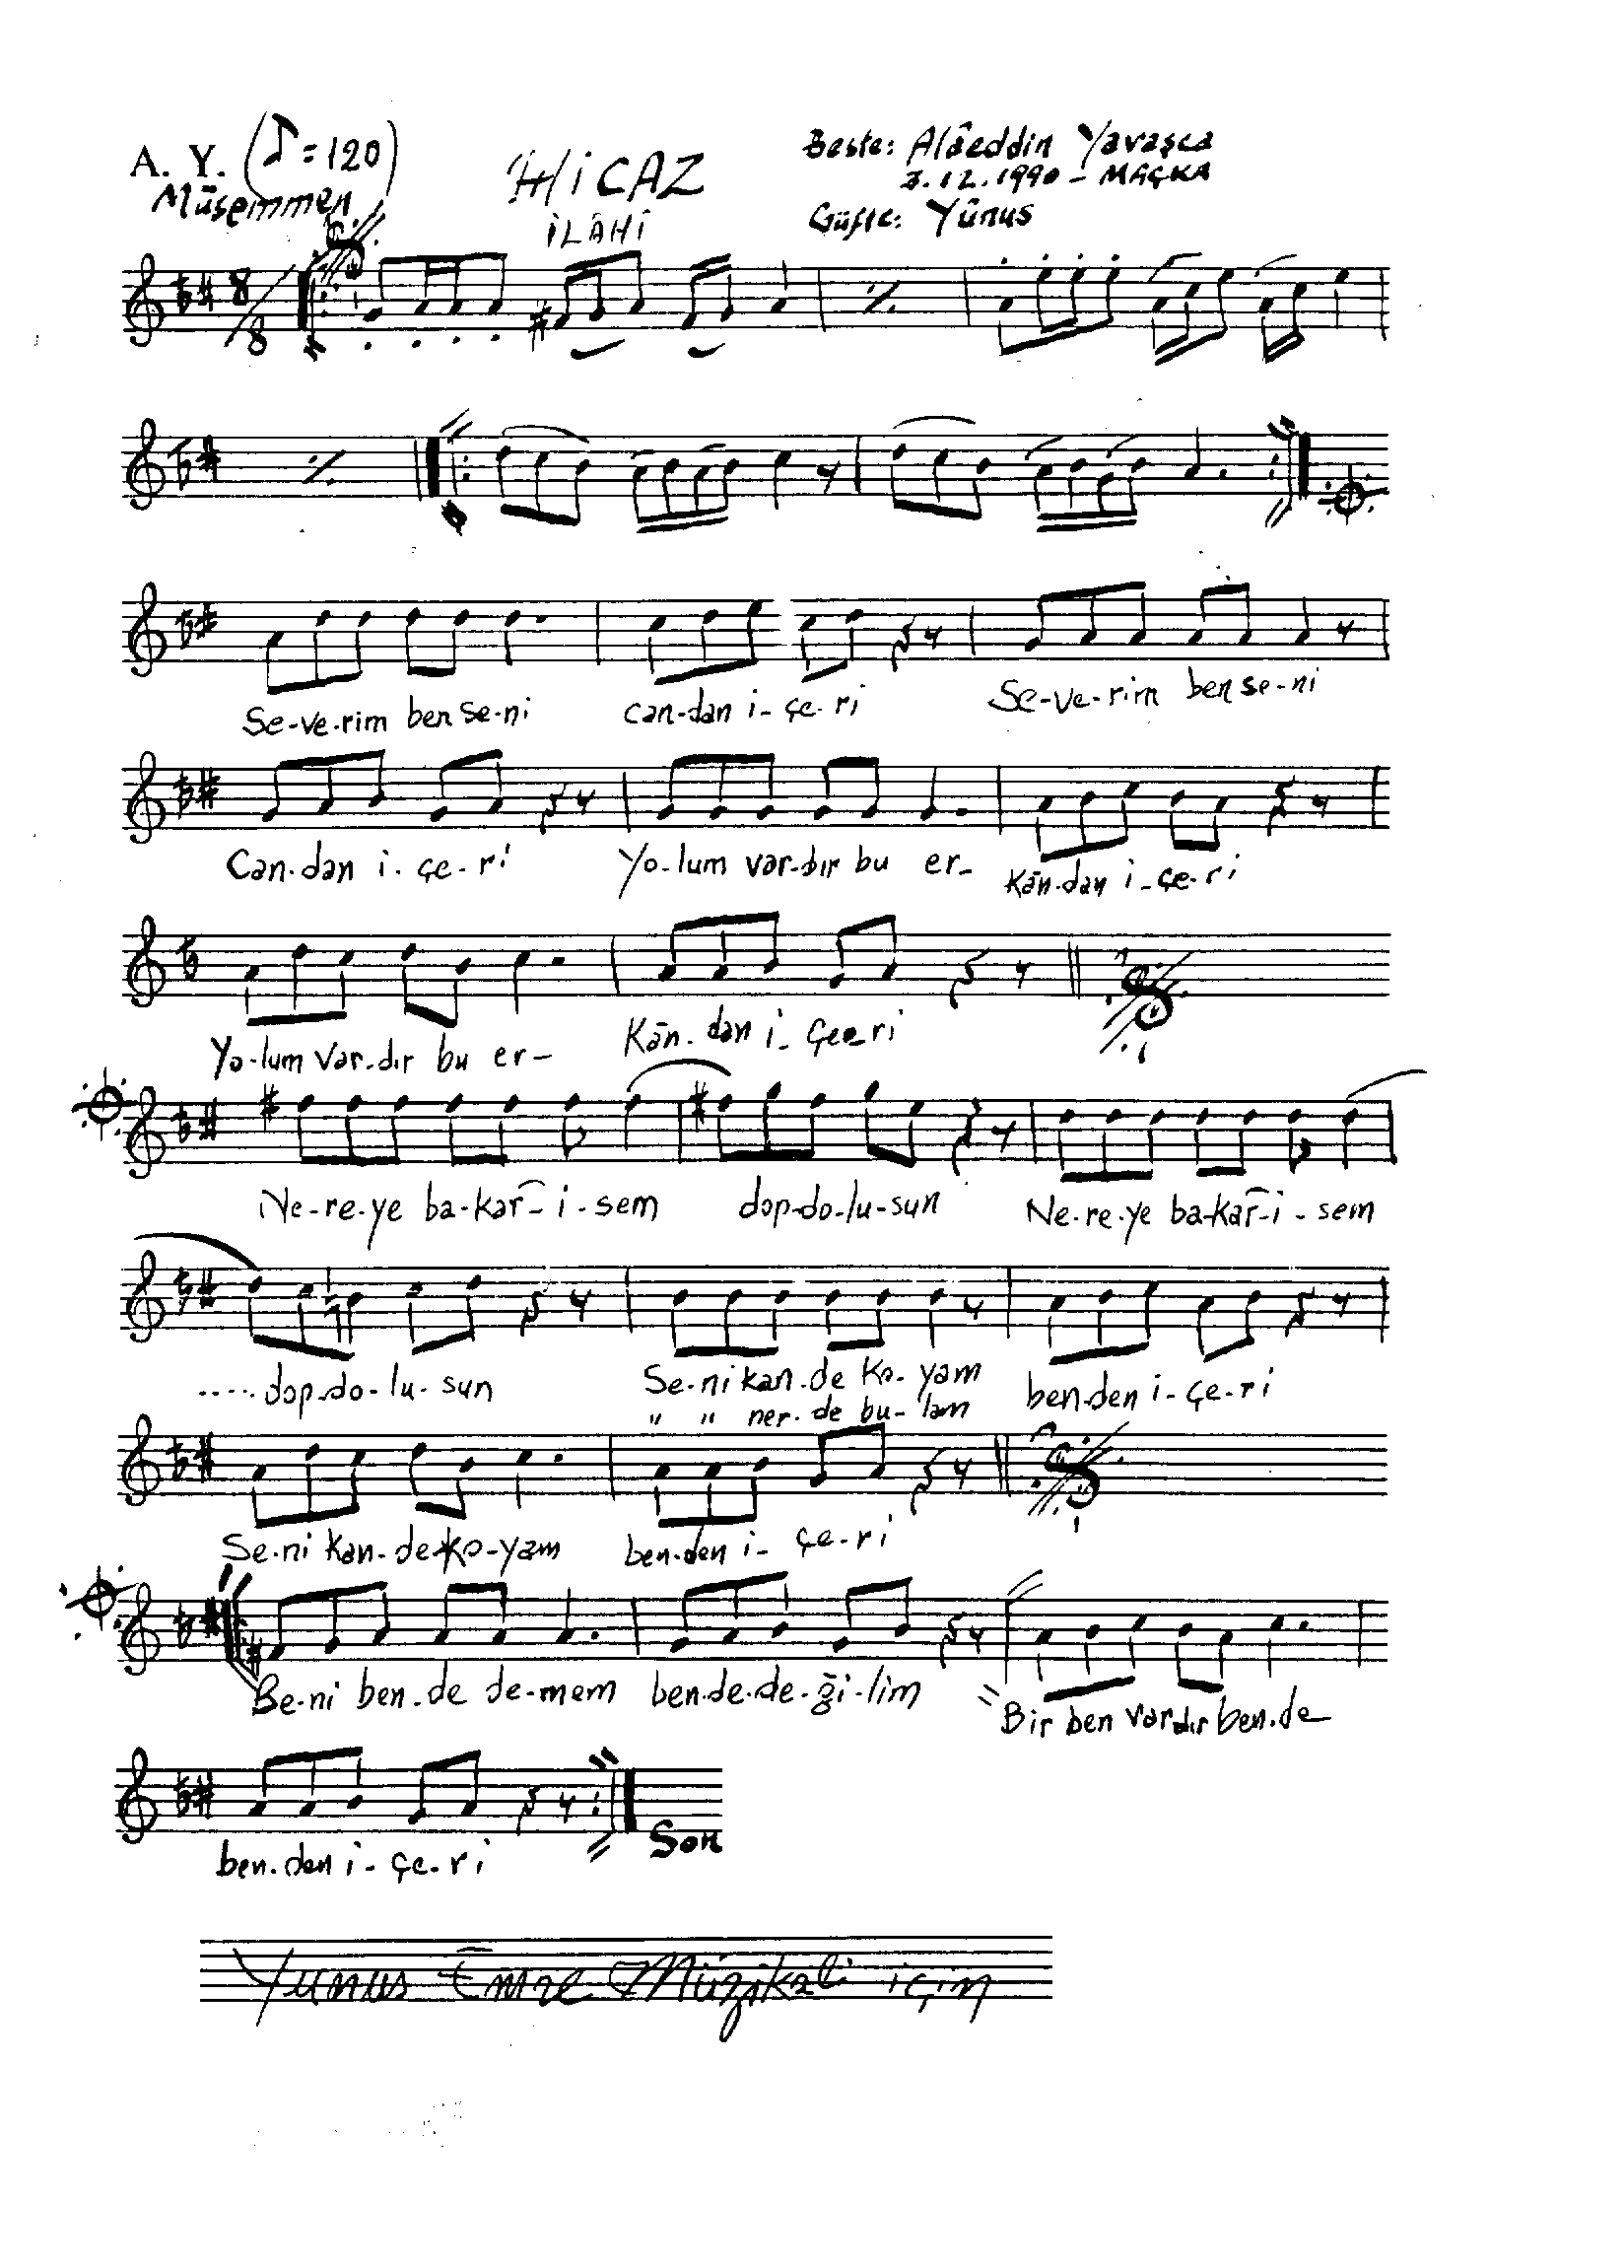 A. Y. (♪=120)
Müsemmen
HİCAZ
İLÂHÎ
Beste: Alâeddin Yavaşca
3.12.1990 - MAÇKA
Güfte: Yûnus
8/8
Se-ve-rim ben se-ni can-dan i-çe-ri Se-ve-rim ben se-ni
Can-dan i-çe-ri Yo-lum var-dır bu er- kân-dan i-çe-ri
Yo-lum var-dır bu er- Kân-dan i-çe-ri
Ne-re-ye ba-kar-i-sem dop-do-lu-sun Ne-re-ye ba-kar-i-sem
.... dop-do-lu-sun Se-ni kan-de ko-yam ben-den i-çe-ri
" " ner-de bu-lam
Se-ni kan-de-ko-yam ben-den i-çe-ri
Be-ni ben-de de-mem ben-de-de-ği-lim Bir ben vardır ben-de
ben-den i-çe-ri Son
Yunus Emre Müzikali için